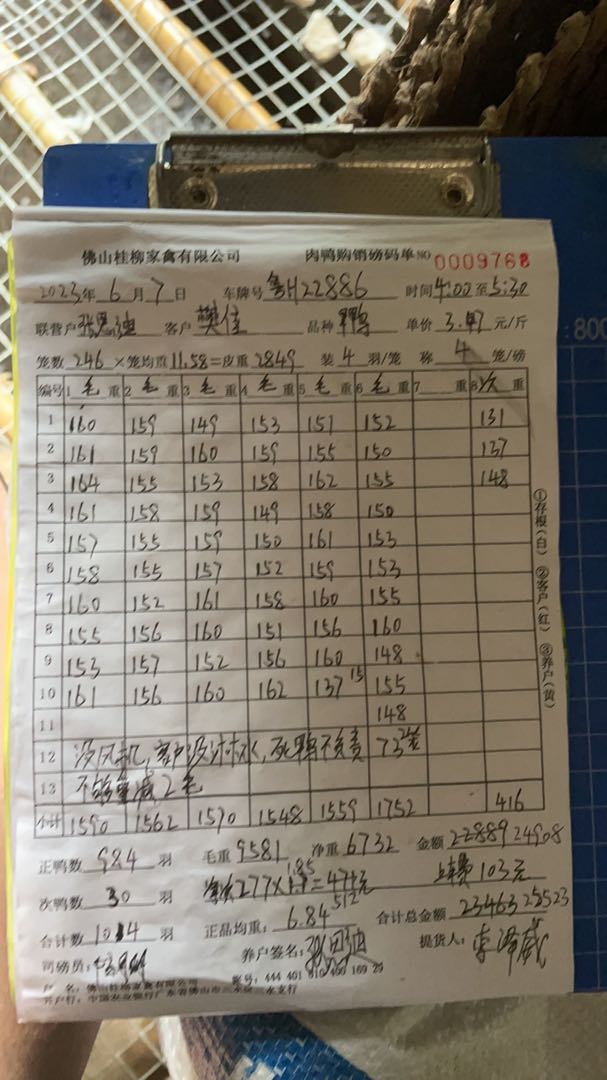 佛山桂柳家禽有限公司 肉鸭购销磅码单 NO 0009768
2023年 6 月 7 日 车牌号 粤H22886 时间 4:00 至 5:30
联营户 客户 樊佳 品种 单价 3.47 元/斤
笼数 246 ×笼均重 11.58 =皮重 2849 装 4 羽/笼 称 4 笼/磅
编号 1 毛 重 2 毛 重 3 毛 重 4 毛 重 5 毛 重 6 毛 重 7 重 8 次 重
1 160 159 149 153 151 152 131
2 161 159 160 159 155 150 137
3 164 155 153 158 162 155 148
4 161 158 159 149 158 150
5 157 155 159 150 161 153
6 158 155 157 152 159 153
7 160 152 161 158 160 155
8 155 156 160 151 156 160
9 153 157 152 156 160 148
10 161 156 160 162 137 15 155
11 148
12 没风机,客户没淋水,死鸭不负责 73
13 不够 减2毛
小计 1590 1562 1570 1548 1559 1752 416
正鸭数 984 羽 毛重 9581 净重 6732 金额 22889 24908
次鸭数 30 羽 277× 1.85 = 474元 512 上车费 103元
合计数 1014 羽 正品均重: 6.84 合计总金额 23463 25523
司磅员: 养户签名: 提货人:
户 名: 佛山桂柳家禽有限公司 账号: 444 401 010 400 169 29
开户行: 中国农业银行广东省佛山市三水区三水支行
①存根(白) ②客户(红) ③养户(黄)
800